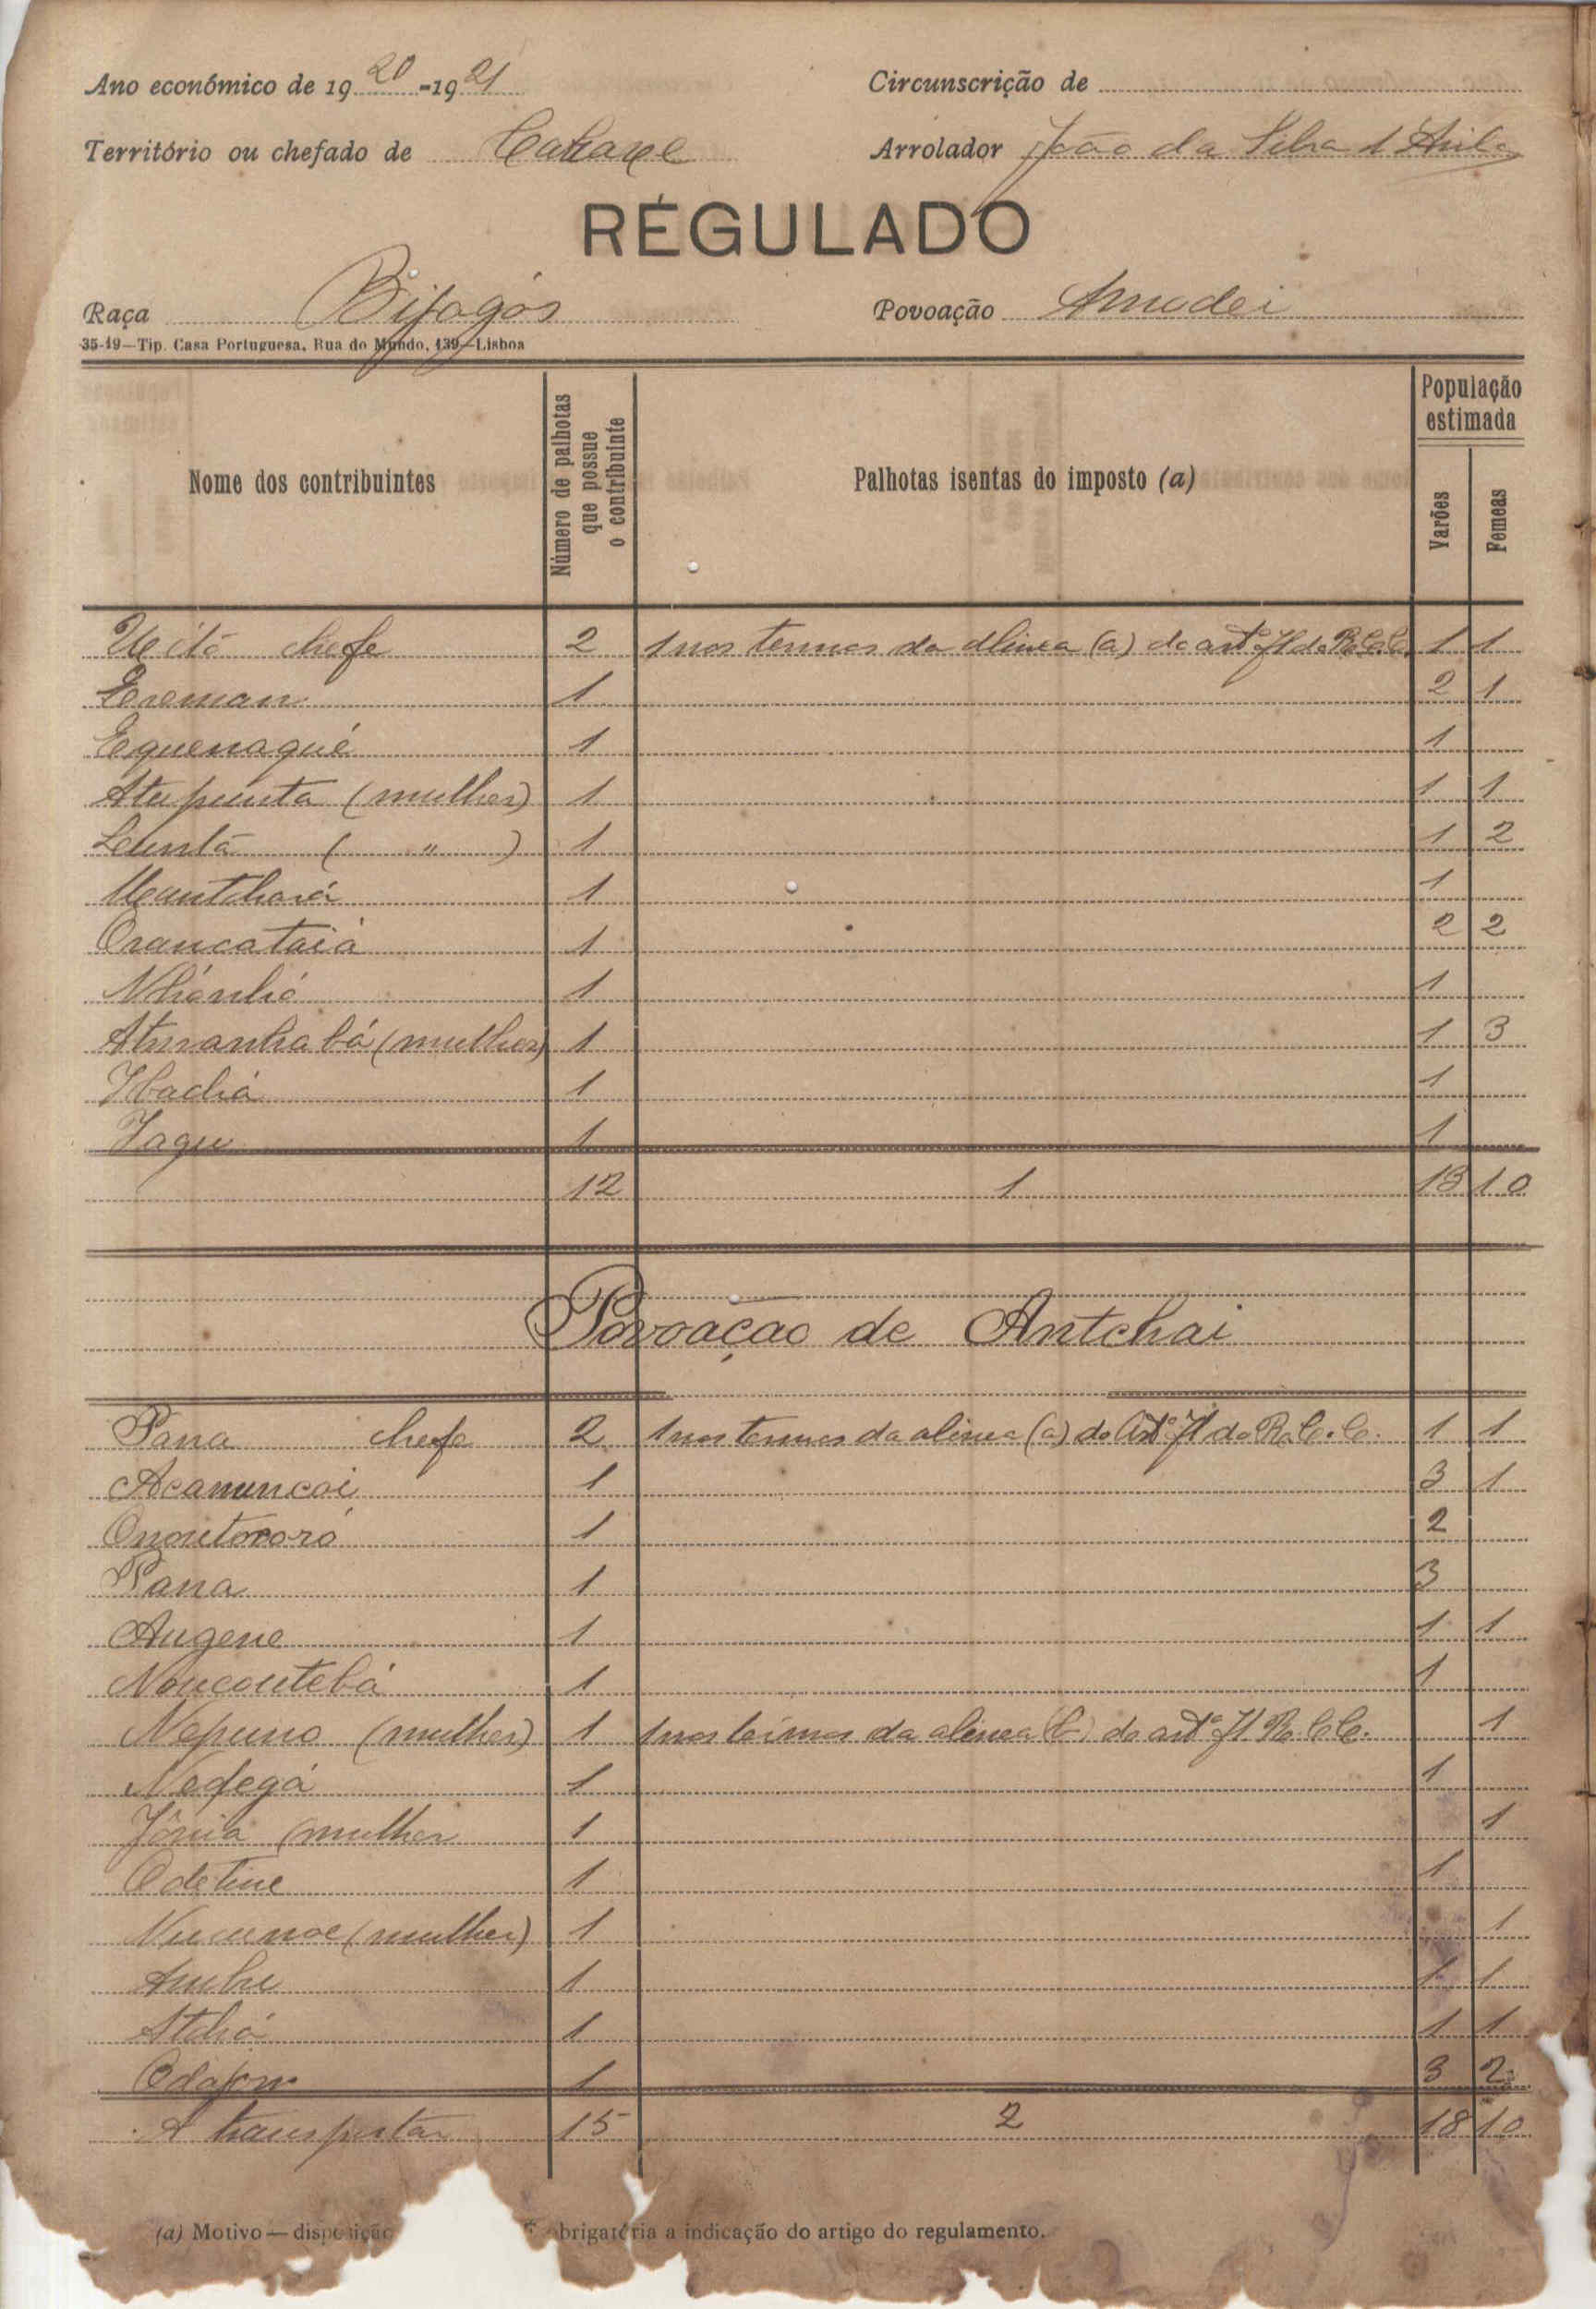 Ano económico de 1920-1921
Circunscrição de
Território ou chefado de
Arrolador João da Silva d'Avila
REGULADO
Raça Bijagós
Povoação Amudei
35-19—Tip. Casa Portuguesa, Rua do Mundo, 139—Lisboa
Nome dos contribuintes
Número de palhotas que possue o contribuinte
Palhotas isentas do imposto (a)
População estimada
Varões
Femeas
chefe 2 1 nos termos da alinea (a) do artº 71 do R.C.C. 1 1
Ereman 1 2 1
Equenaqué 1 1
Atepunta (mulher) 1 1 1
( " ) 1 1 2
1 1
Orancataiá 1 2 2
Nhónhó 1 1
(mulher) 1 1 3
Ibachá 1 1
Jaqu 1 1
12 1 13 10
Povoação de Antchai
Pana chefe 2 1 nos termos da alinea (a) do Artº 71 do R.C.C. 1 1
Acanuncai 1 3 1
Onontororó 1 2
Pana 1 3
Augene 1 1 1
Noucoutebá 1 1
Nepuno (mulher) 1 1 nos termos da alinea do artº 71 R.C.C. 1
Nedegá 1 1
Jónia (mulher 1 1
Odetine 1 1
(mulher) 1 1
1 1 1
Atchó 1 1 1
1 3 2
A transportar 15 2 18 10
(a) Motivo—disposição brigatória a indicação do artigo do regulamento.